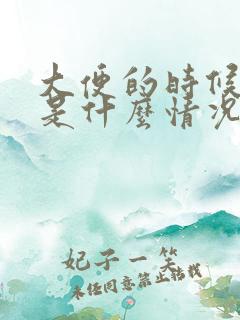 大便的时候
是什麼情况
妃子一笑
未经同意禁止转载